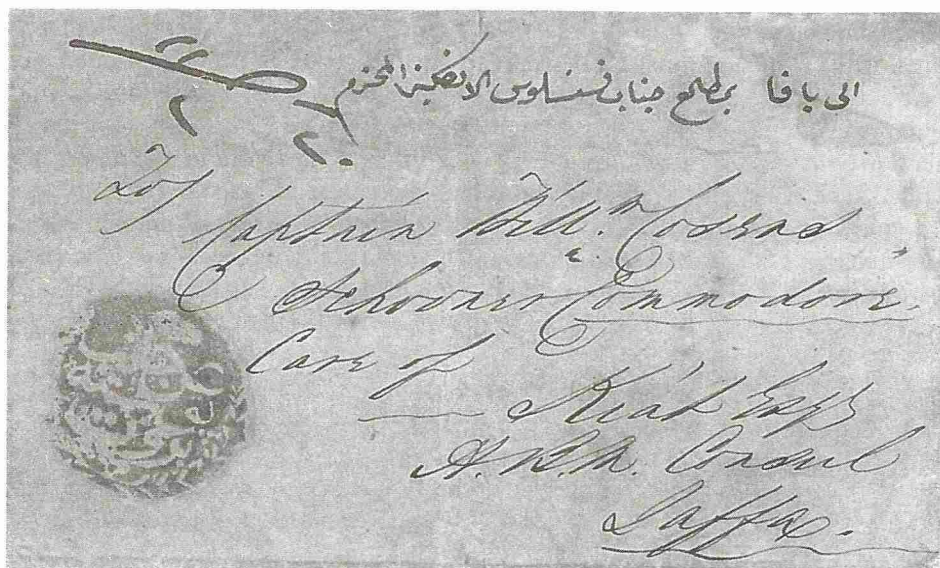 الى يافا بمطلع جناب قنسلوس الانكليز المحترم
٢
٢٠
To/
Captain Will.m Cosens
Schooner "Commodore"
Care of
Kiat Esqr
H.B.M. Consul
Jaffa.